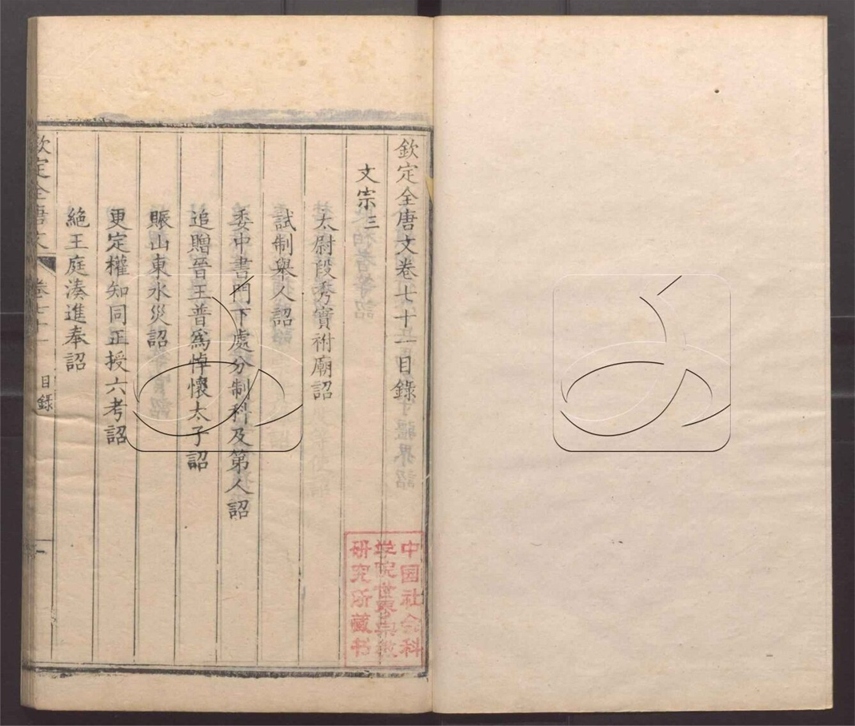 欽定全唐文卷七十一目錄
文宗三
太尉段秀實祔廟詔
試制舉人詔
委中書門下處分制科及第人詔
追贈晉王普爲悼懷太子詔
賑山東水災詔
更定權知同正授六考詔
絕王庭湊進奉詔
欽定全唐文
卷七十一
目錄
一
中国社会科
学院世界宗教
研究所藏书